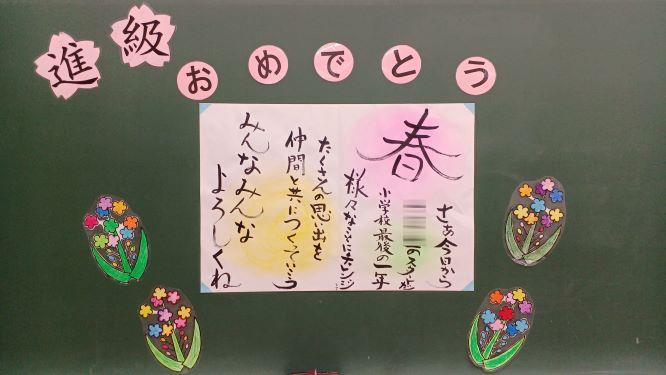 進級
おめでとう
春
さあ今日から
のスタート
小学校最後の一年
様々なことにチャレンジ
たくさんの思い出を
仲間と共につくっていこう
みんなみんな
よろしくね